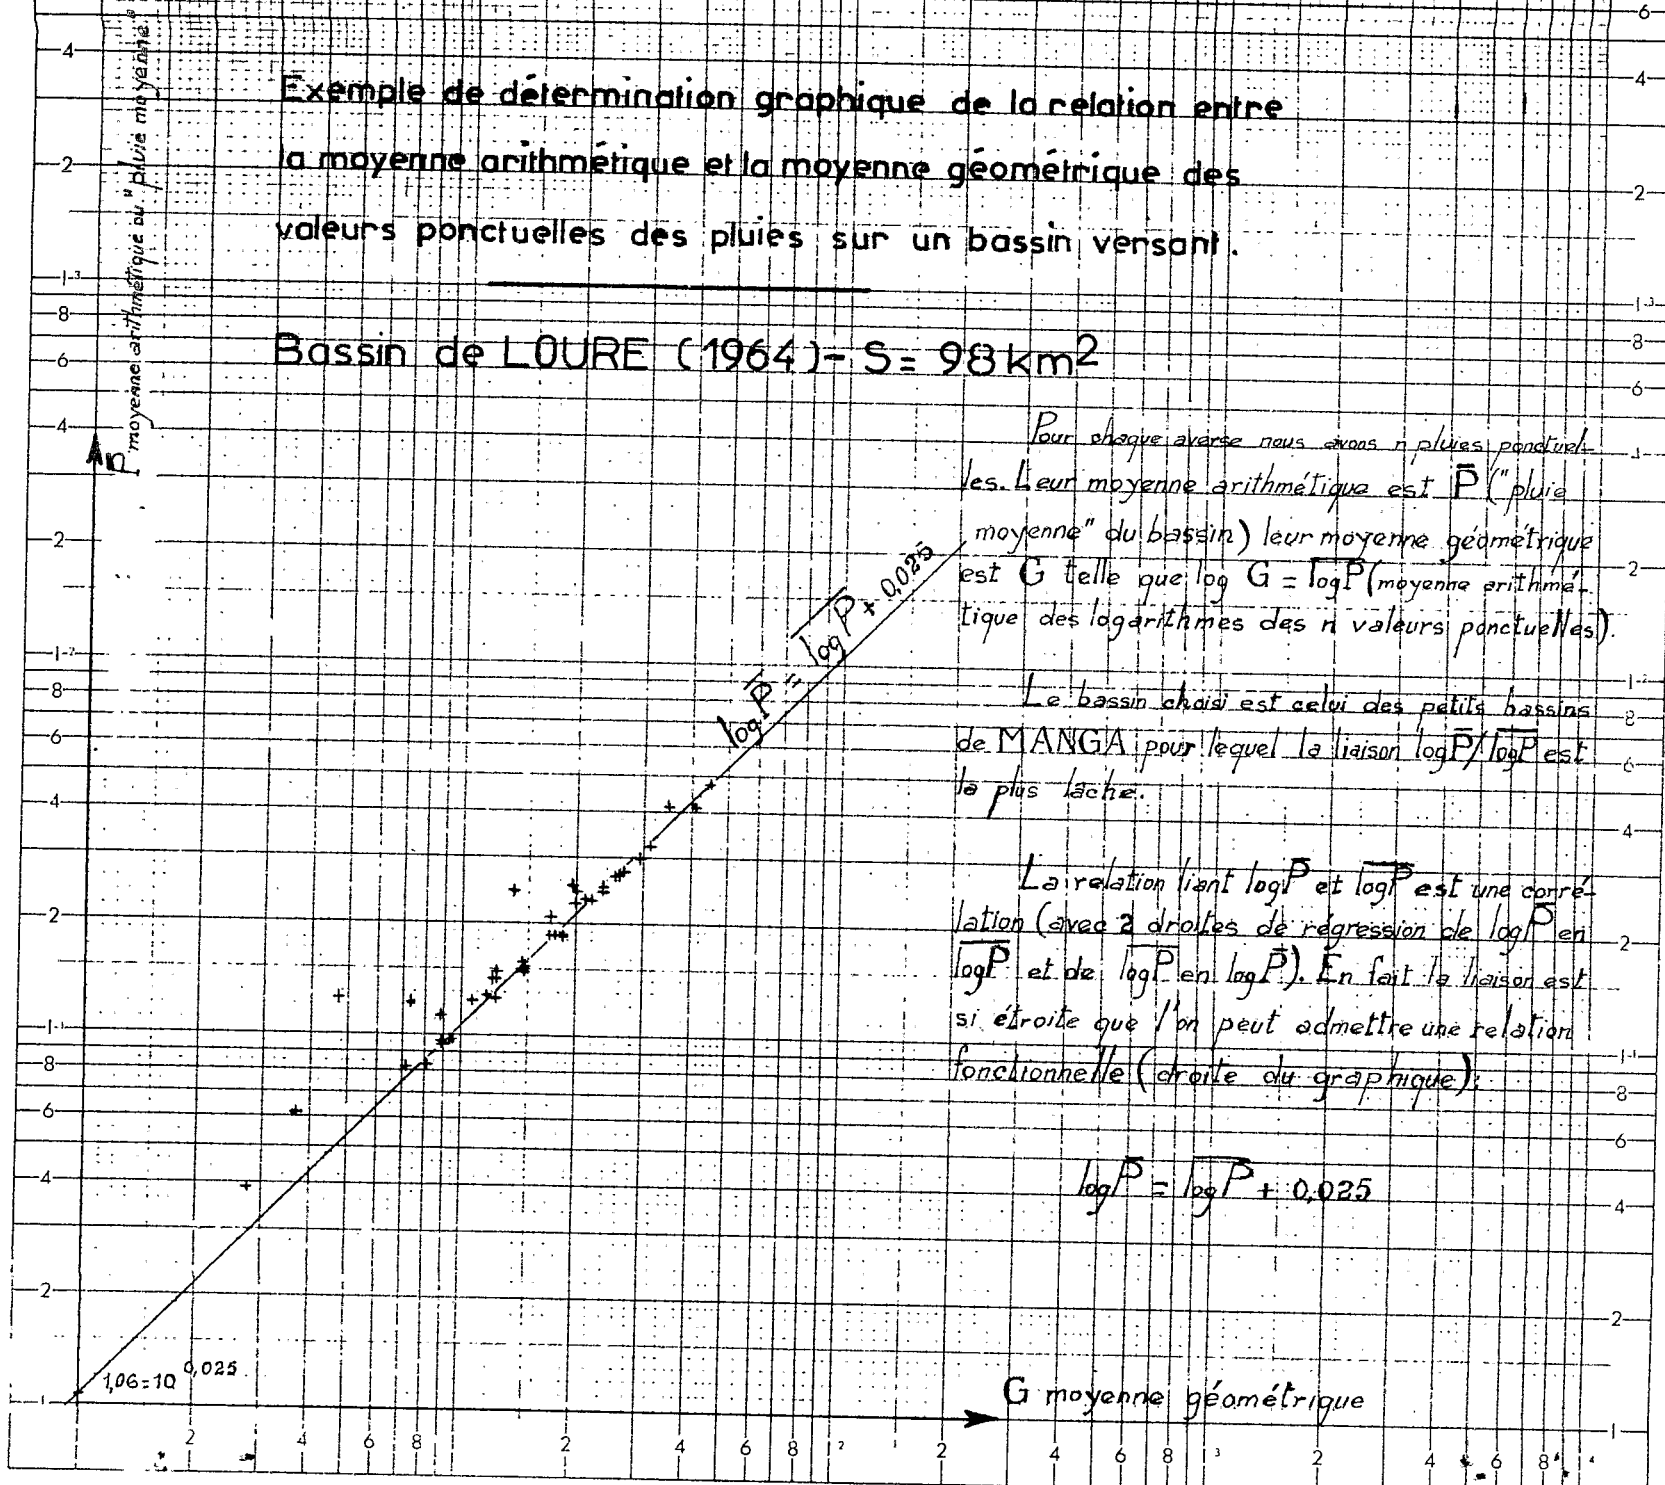 Exemple de détermination graphique de la relation entre
la moyenne arithmétique et la moyenne géométrique des
valeurs ponctuelles des pluies sur un bassin versant.
Bassin de LOURE (1964)- S= 98 km²
moyenne arithmétique ou "pluie moyenne"
P
Pour chaque averse nous avons n pluies ponctuel-
les. Leur moyenne arithmétique est P̄ ("pluie
moyenne" du bassin) leur moyenne géométrique
est G telle que log G = \overline{logP} (moyenne arithmé-
tique des logarithmes des n valeurs ponctuelles).
Le bassin choisi est celui des petits bassins
de MANGA pour lequel la liaison logP̄/\overline{logP} est
la plus lâche.
La relation liant logP̄ et \overline{logP} est une corré-
lation (avec 2 droites de régression de logP̄ en
\overline{logP} et de \overline{logP} en logP̄). En fait la liaison est
si étroite que l'on peut admettre une relation
fonctionnelle (droite du graphique):
logP̄ = \overline{logP} + 0,025
logP̄ = \overline{logP} + 0,025
1,06=10^0,025
G moyenne géométrique
4
2
1-³
8
6
4
2
1-²
8
6
4
2
1-¹
8
6
4
2
1
6
4
2
1-³
8
6
4
2
1-²
8
6
4
2
1-¹
8
6
4
2
1
2 4 6 8 2 4 6 8 1² 2 4 6 8 1³ 2 4 6 8